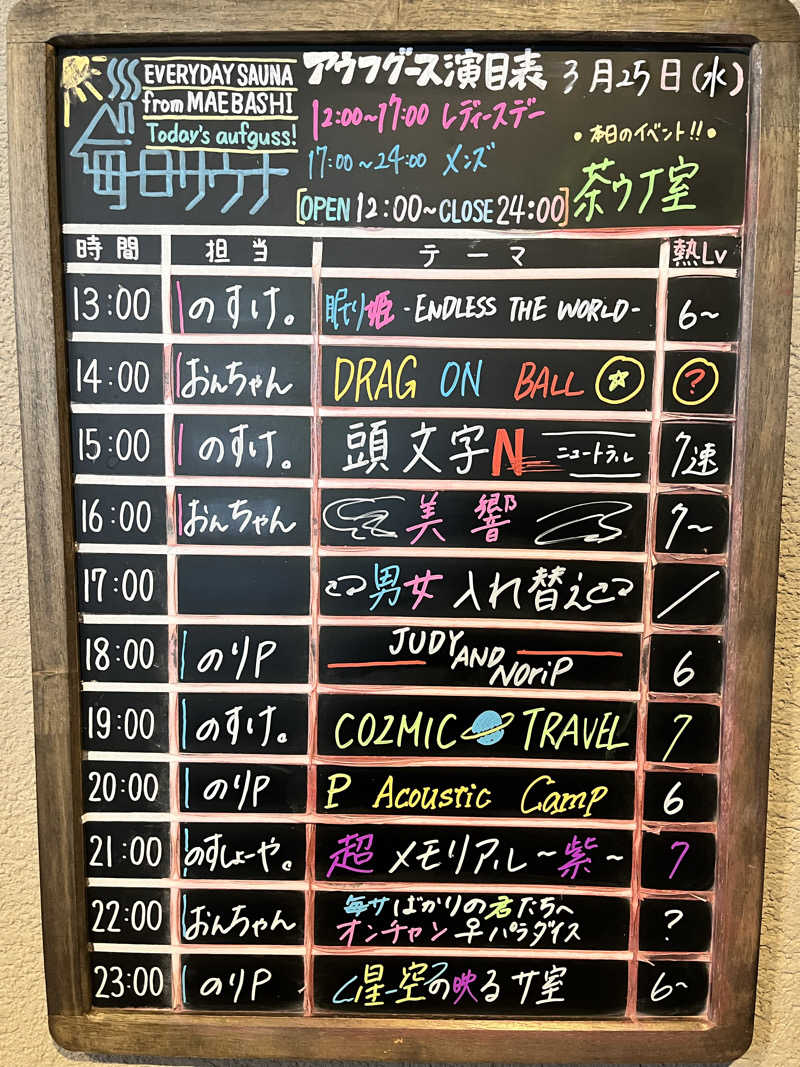 EVERYDAY SAUNA
from MAEBASHI
Today's aufguss!
毎日サウナ
アウフグース演目表 3月25日(水)
12:00~17:00 レディースデー
17:00~24:00 メンズ
[OPEN 12:00~CLOSE 24:00]
•本日のイベント!!•
茶ウナ室
時間 担当 テーマ 熱Lv
13:00 のすけ。 眠り姫 -ENDLESS THE WORLD- 6~
14:00 おんちゃん DRAG ON BALL ☆ ?
15:00 のすけ。 頭文字N ニュートラル 7速
16:00 おんちゃん 美響 7~
17:00 男女入れ替え /
18:00 のりP JUDY AND NoriP 6
19:00 のすけ。 COZMIC TRAVEL 7
20:00 のりP P Acoustic Camp 6
21:00 のすしょーや。 超メモリアル~紫~ 7
22:00 おんちゃん 毎サばかりの君たちへ
オンチャン♀パラダイス ?
23:00 のりP 星空の映るサ室 6~